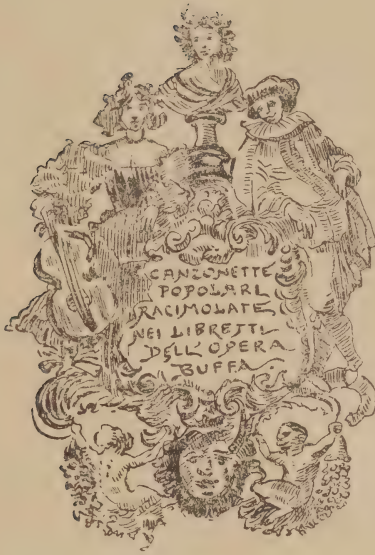 CANZONETTE
POPOLARI
RACIMOLATE
NEI LIBRETTI
DELL'OPERA
BUFFA